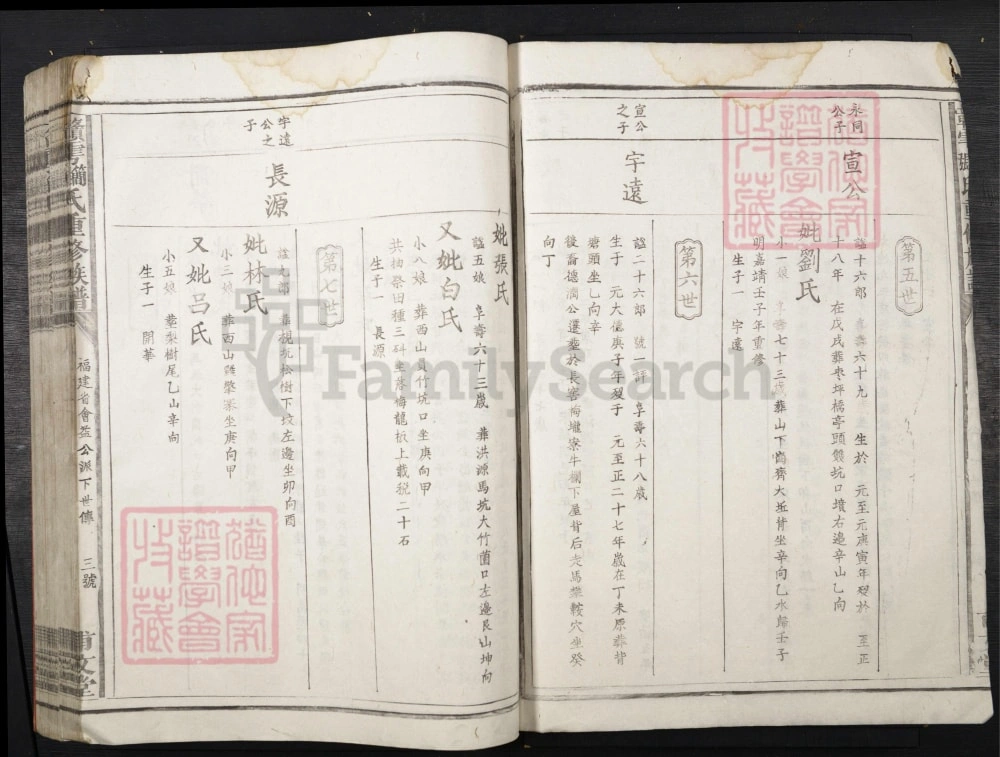 第五世
永同公子
宣公
諡十六郎 享壽六十九 生於 元至元庚寅年歿於 至正
十八年 在戊戌葬枣坪橋亭頭雙坑口墳右邉辛山乙向
妣劉氏
小一娘 享壽七十三歲葬山下 大坵背坐辛向乙水歸壬子
明嘉靖壬子年重修
生子一 宇遠
第六世
宣公之子
宇遠
諡二十六郎 號一評 享壽六十八歲
生于 元大德庚子年歿于 元至正二十七年歲在丁未原葬背
塘頭坐乙向辛
後裔德满公遷塟於長窖 寮牛欄下屋背后走馬 鞍穴坐癸
向丁
妣張氏
諡五娘 享壽六十三歲 葬洪源馬坑大竹 口左邉艮山坤向
又妣白氏
小八娘 葬西山員竹坑口坐庚向甲
共抽祭田種三斗坐落梅龍 上載税二十石
生子一 長源
第七世
宇遠公之子
長源
諡九郎 葬梘坑松樹下坟左邊坐卯向酉
妣林氏
小三娘 葬西山 坐庚向甲
又妣呂氏
小五娘 塟梨樹尾乙山辛向
生子一 開華
簡氏重修族譜
福建省會益公派下世傳
三號
FamilySearch